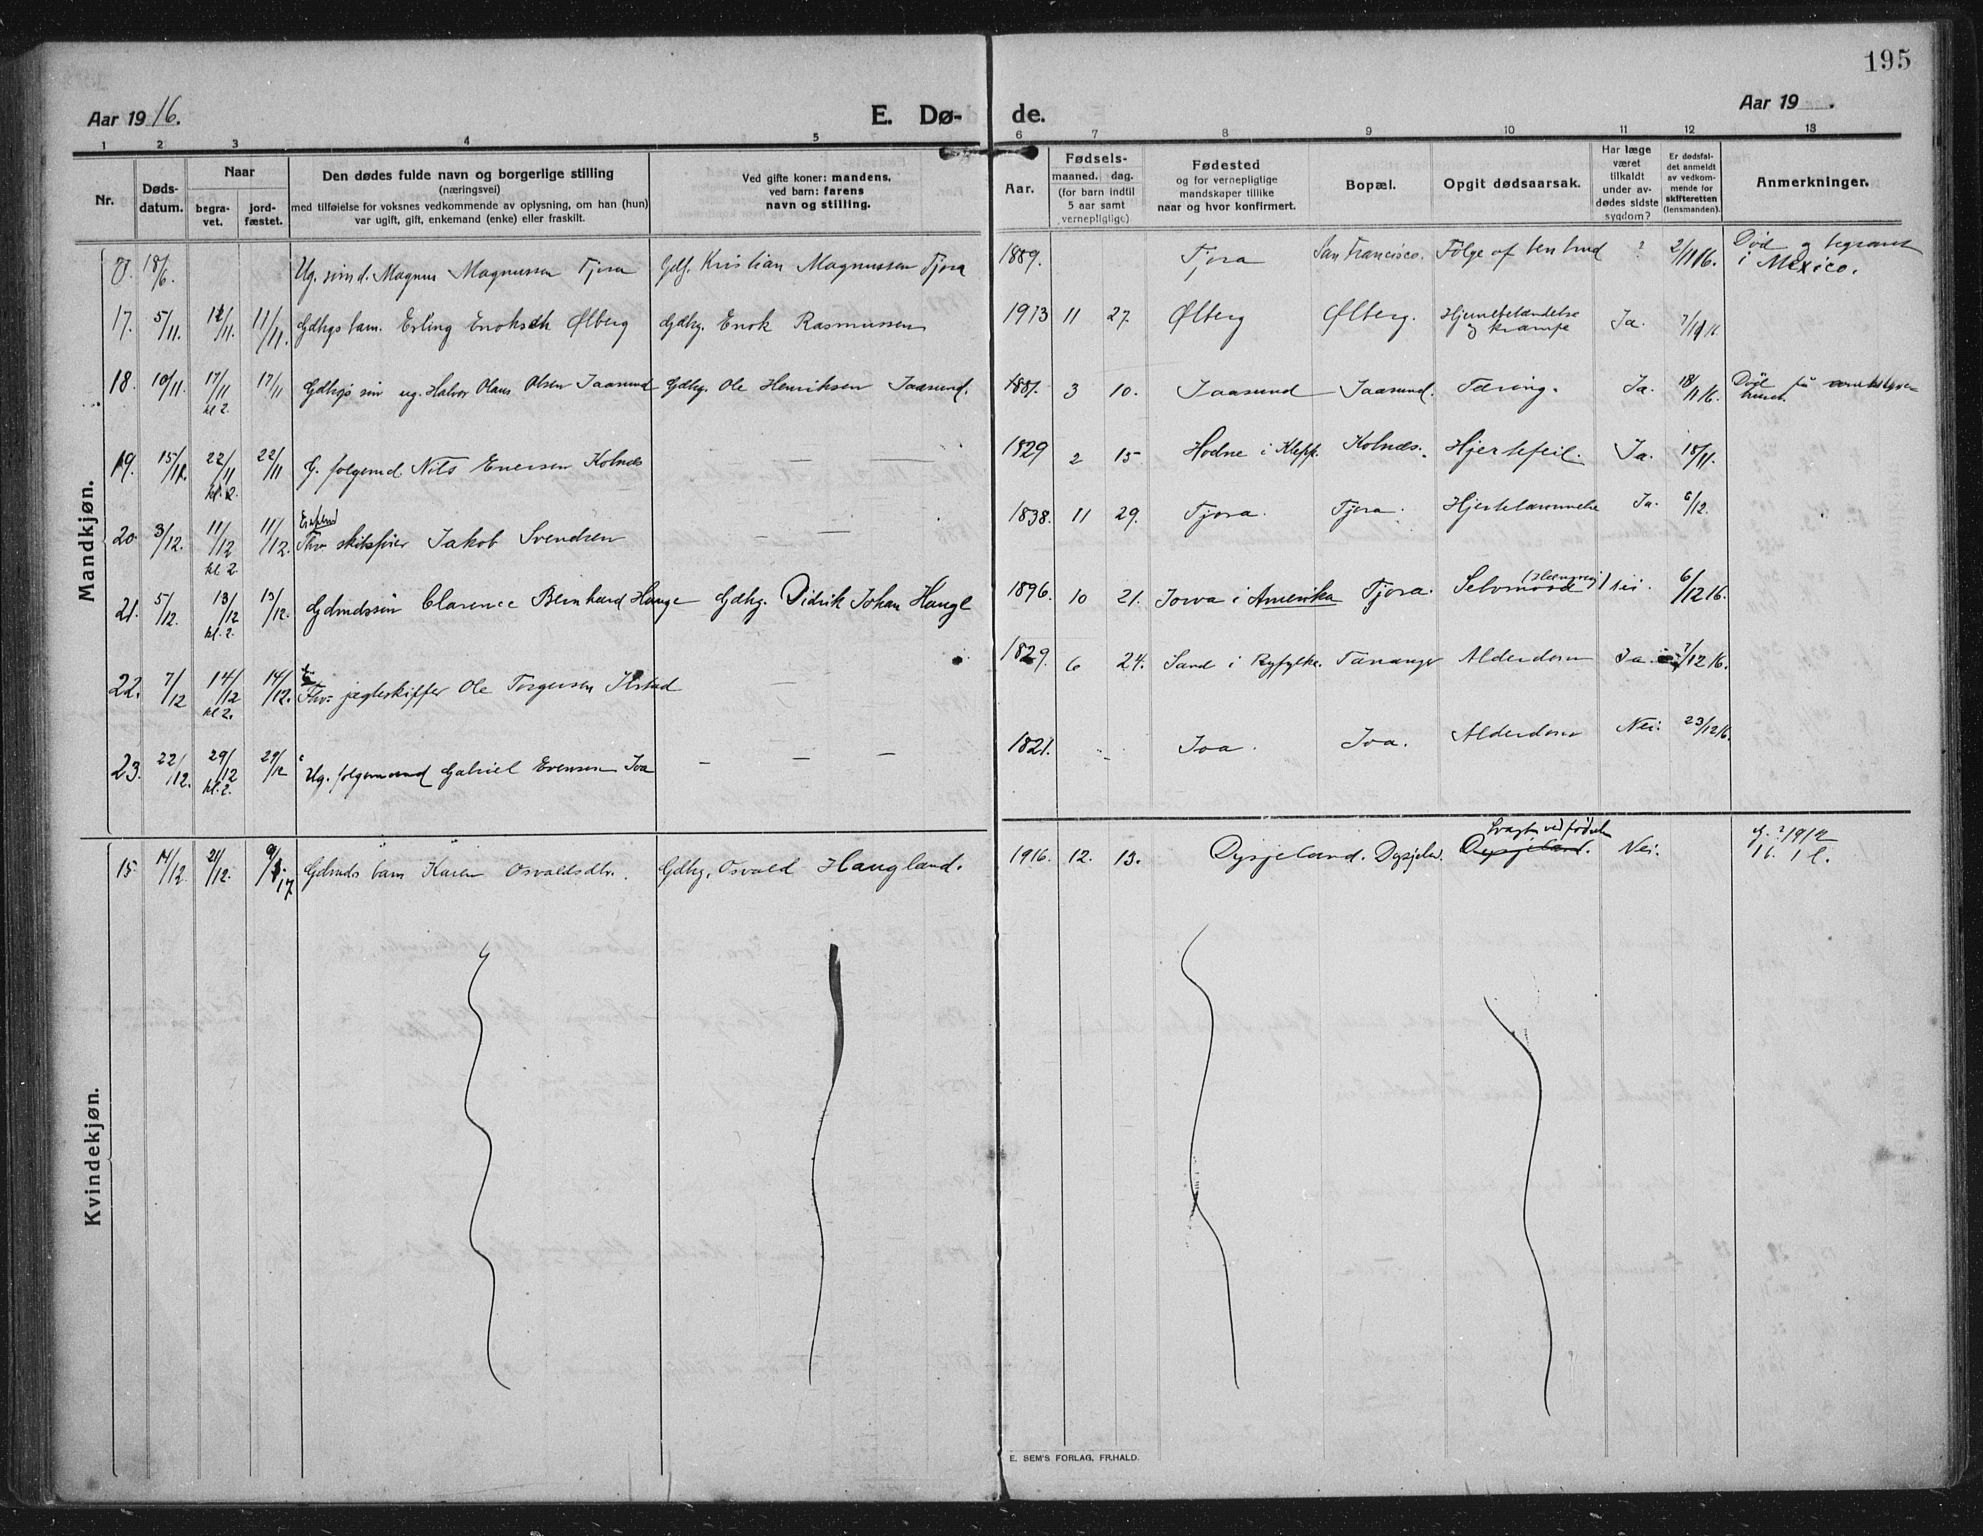 195
Aar 1916.
E. Dø-
de.
Aar 19 .
1 2 3 4 5 6 7 8 9 10 11 12 13
Nr.
Døds-
datum.
Naar
begra-
vet.
jord-
fæstet.
Den dødes fulde navn og borgerlige stilling
(næringsvei)
med tilføielse for voksnes vedkommende av oplysning, om han (hun)
var ugift, gift, enkemand (enke) eller fraskilt.
Ved gifte koner: mandens,
ved barn: farens
navn og stilling.
Aar.
Fødsels-
maaned. dag.
(for barn indtil
5 aar samt
vernepligtige)
Fødested
og for vernepligtige
mandskaper tillike
naar og hvor konfirmert.
Bopæl.
Opgit dødsaarsak.
Har læge
været
tilkaldt
under av-
dødes sidste
sygdom?
Er dødsfal-
det anmeldt
av vedkom-
mende for
skifteretten
(lensmanden).
Anmerkninger.
Mandkjøn.
18/6. Ug. sømd. Magnus Magnussen Tjora Gdf. Kristian Magnussen Tjora 1889. Tjora San Francisco. Følge af ben brud ? 2/11 16. Død og begravet
i Mexico.
17. 5/11. 12/11. 11/11. Gdbgs barn. Erling Enoksen Ølberg Gdbg. Enok Rasmussen 1913 11 27. Ølberg Ølberg. Hjernebetændelse
og krampe Ja.
18. 10/11. 17/11 17/11 Gdbgs søn ug. Halvor Olaus Olsen Jaasund Gdbg. Ole Henriksen Jaasund. 1881. 3 10. Jaasund Jaasund. Tæring. Ja. 18/11 16. Død på
kl 2.
19. 15/11. 22/11 22/11 G. folgemd. Nils Enersen Kolnes — — 1829 2 15 Hodne i Klepp. Kolnæs. Hjertefeil. Ja. 18/11.
kl. 2.
20. 3/12. 11/12 11/12. skibsfører Jakob Svendsen — — 1838. 11 29. Tjora. Tjora. Hjertelammelse Ja. 6/12.
kl. 2
21. 5/12. 13/12 13/12. Gdmdssøn Clarence Bernhard Hauge Gdbg. Didrik Johan Hauge 1896. 10 21. Jowa i Amerika Tjora. Selvmord (Hængning) Nei. 6/12 16.
kl. 2.
22. 7/12 14/12 14/12. jagteskipper Ole Torgersen — — 1829. 6 24. Sand i Ryfylke. Tananger Alderdom Ja. 7/12 16.
kl 2.
23. 22/12. 29/12 29/12 Ug. folgemand Gabriel Evensen Joa — — 1821. Joa. Joa. Alderdom Nei. 23/12 16.
kl. 2.
Kvindekjøn.
15. 14/12. 21/12. Gdmds barn Karen Osvaldsdtr. Gdbg. Osvald Haugland. 1916. 12. 13. Dysjeland. Dysjelan. Dysjeland. Svagt ved fødselen Nei.
E. SEM'S FORLAG, FR.HALD.